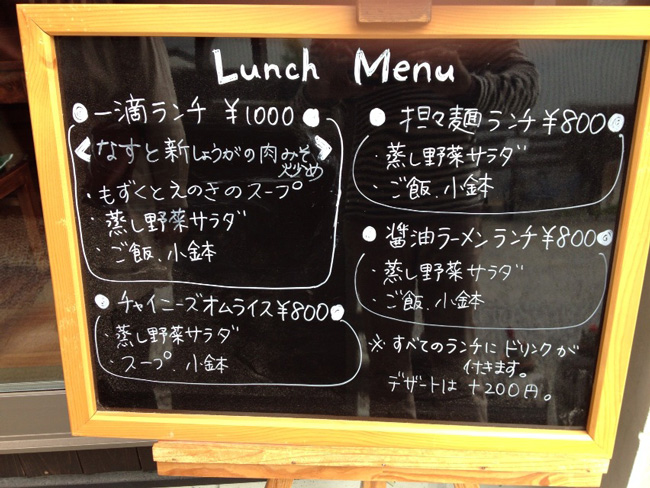 Lunch Menu
一滴ランチ ¥1000
<なすと新しょうがの肉みそ炒め>
・もずくとえのきのスープ
・蒸し野菜サラダ
・ご飯、小鉢
チャイニーズオムライス¥800
・蒸し野菜サラダ
・スープ、小鉢
担々麺ランチ¥800
・蒸し野菜サラダ
・ご飯、小鉢
醤油ラーメンランチ¥800
・蒸し野菜サラダ
・ご飯、小鉢
※すべてのランチにドリンクが
付きます。
デザートは+200円。